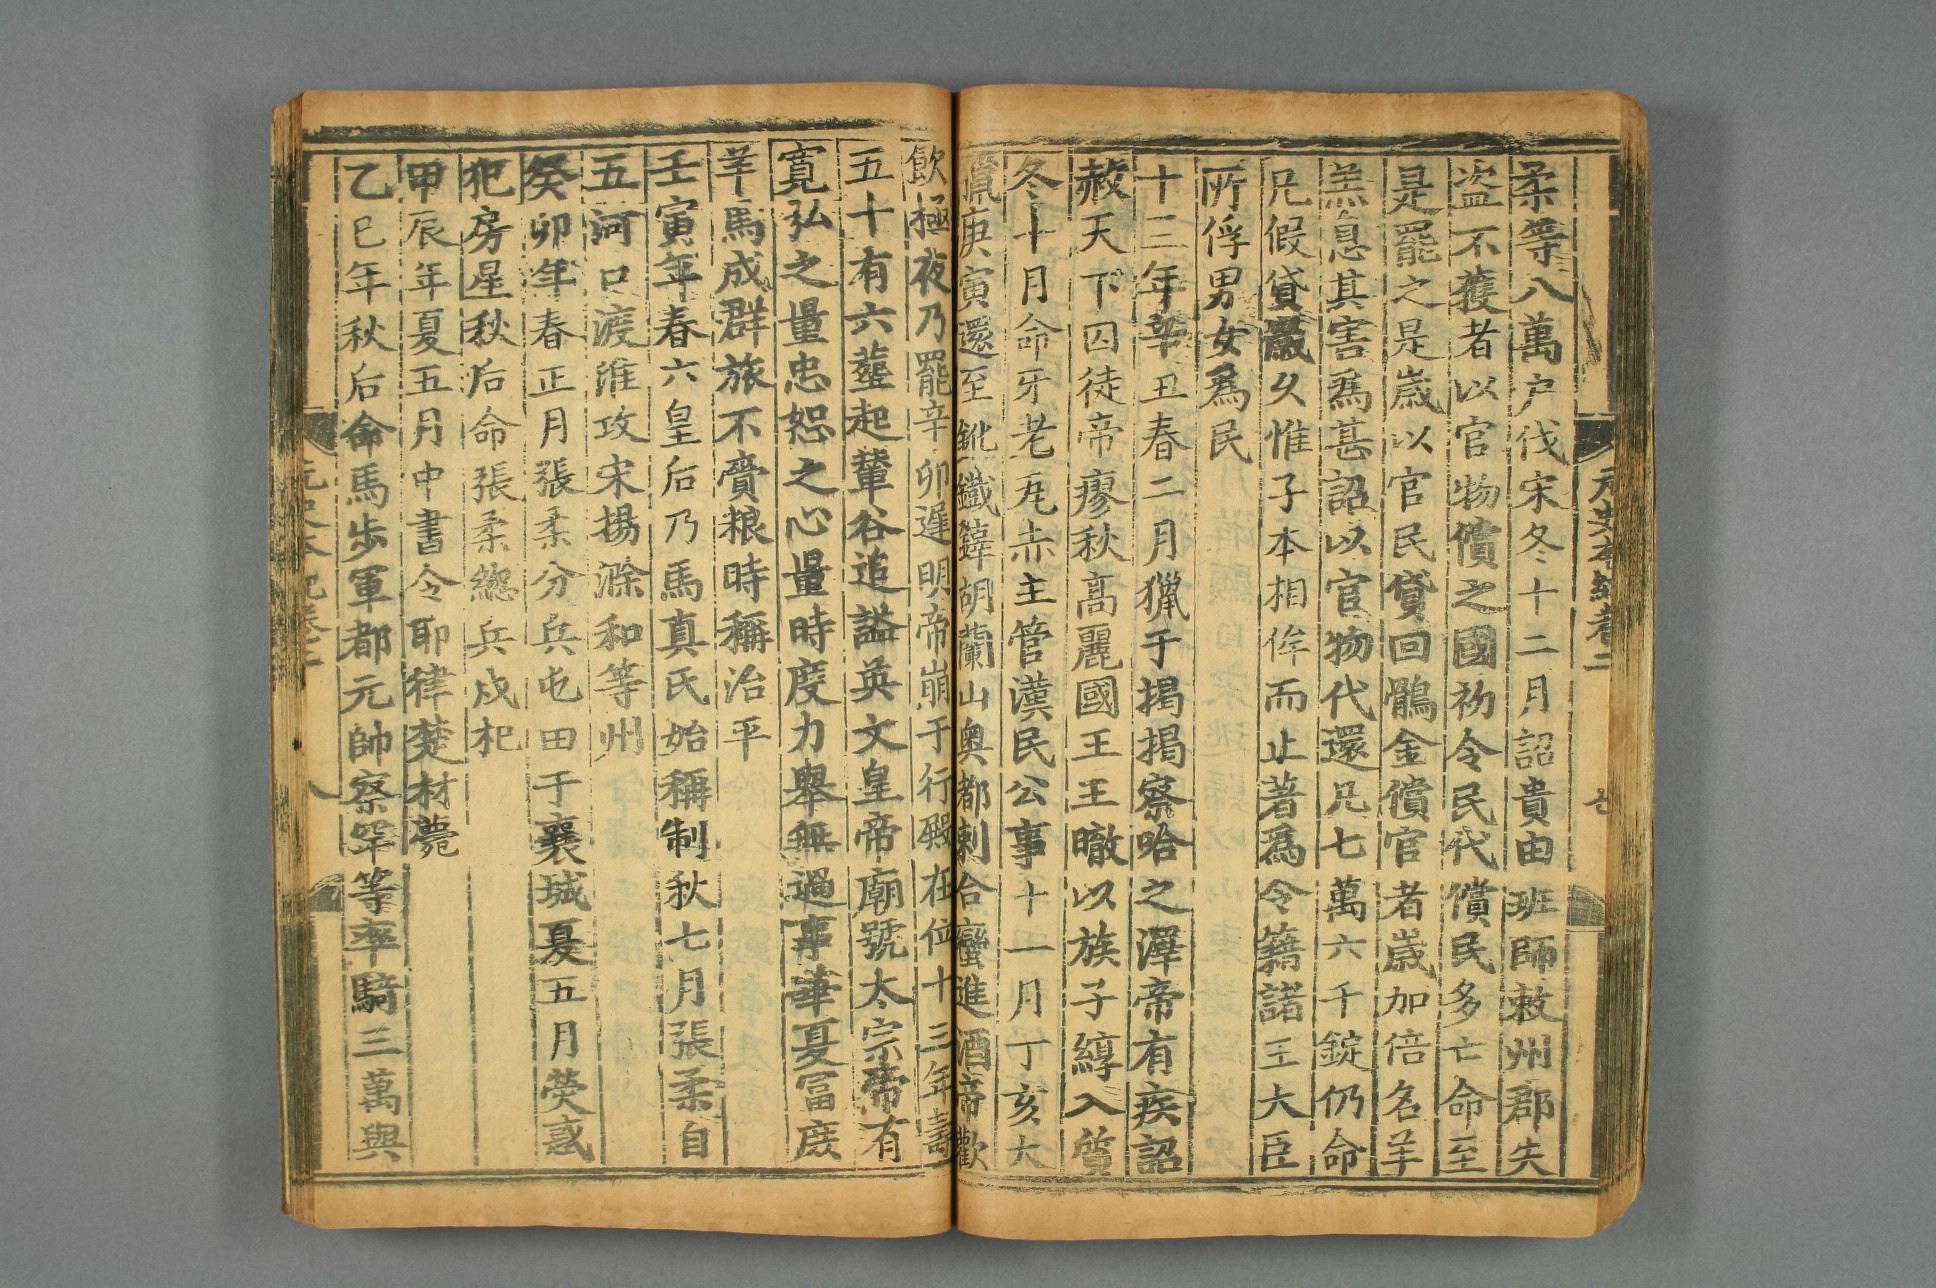 元史本紀卷二 七
柔等八萬戶伐宋冬十二月詔貴由班師敕州郡失
盜不獲者以官物償之國初令民代償民多亡命至
是罷之是歲以官民貸回鶻金償官者歲加倍名羊
羔息其害爲甚詔以官物代還凡七萬六千錠仍命
凡假貸歲久惟子本相侔而止著爲令籍諸王大臣
所俘男女爲民
十三年辛丑春二月獵于揭揭察哈之澤帝有疾詔
赦天下囚徒帝廖秋高麗國王王㬚以族子綧入質
冬十月命牙老瓦赤主管漢民公事十一月丁亥大
獵庚寅還至鈋鐵鋶胡蘭山奧都剌合蠻進酒帝歡
飲極夜乃罷辛卯遲明帝崩于行殿在位十三年壽
五十有六葬起輦谷追謚英文皇帝廟號太宗帝有
寬弘之量忠恕之心量時度力舉無過事華夏富庶
羊馬成群旅不賫粮時稱治平
壬寅年春六皇后乃馬真氏始稱制秋七月張柔自
五河口渡淮攻宋揚滁和等州
癸卯年春正月張柔分兵屯田于襄城夏五月熒惑
犯房星秋后命張柔總兵戍杞
甲辰年夏五月中書令耶律楚材薨
乙巳年秋后命馬步軍都元帥察罕等率騎三萬與
元史本紀卷二 八